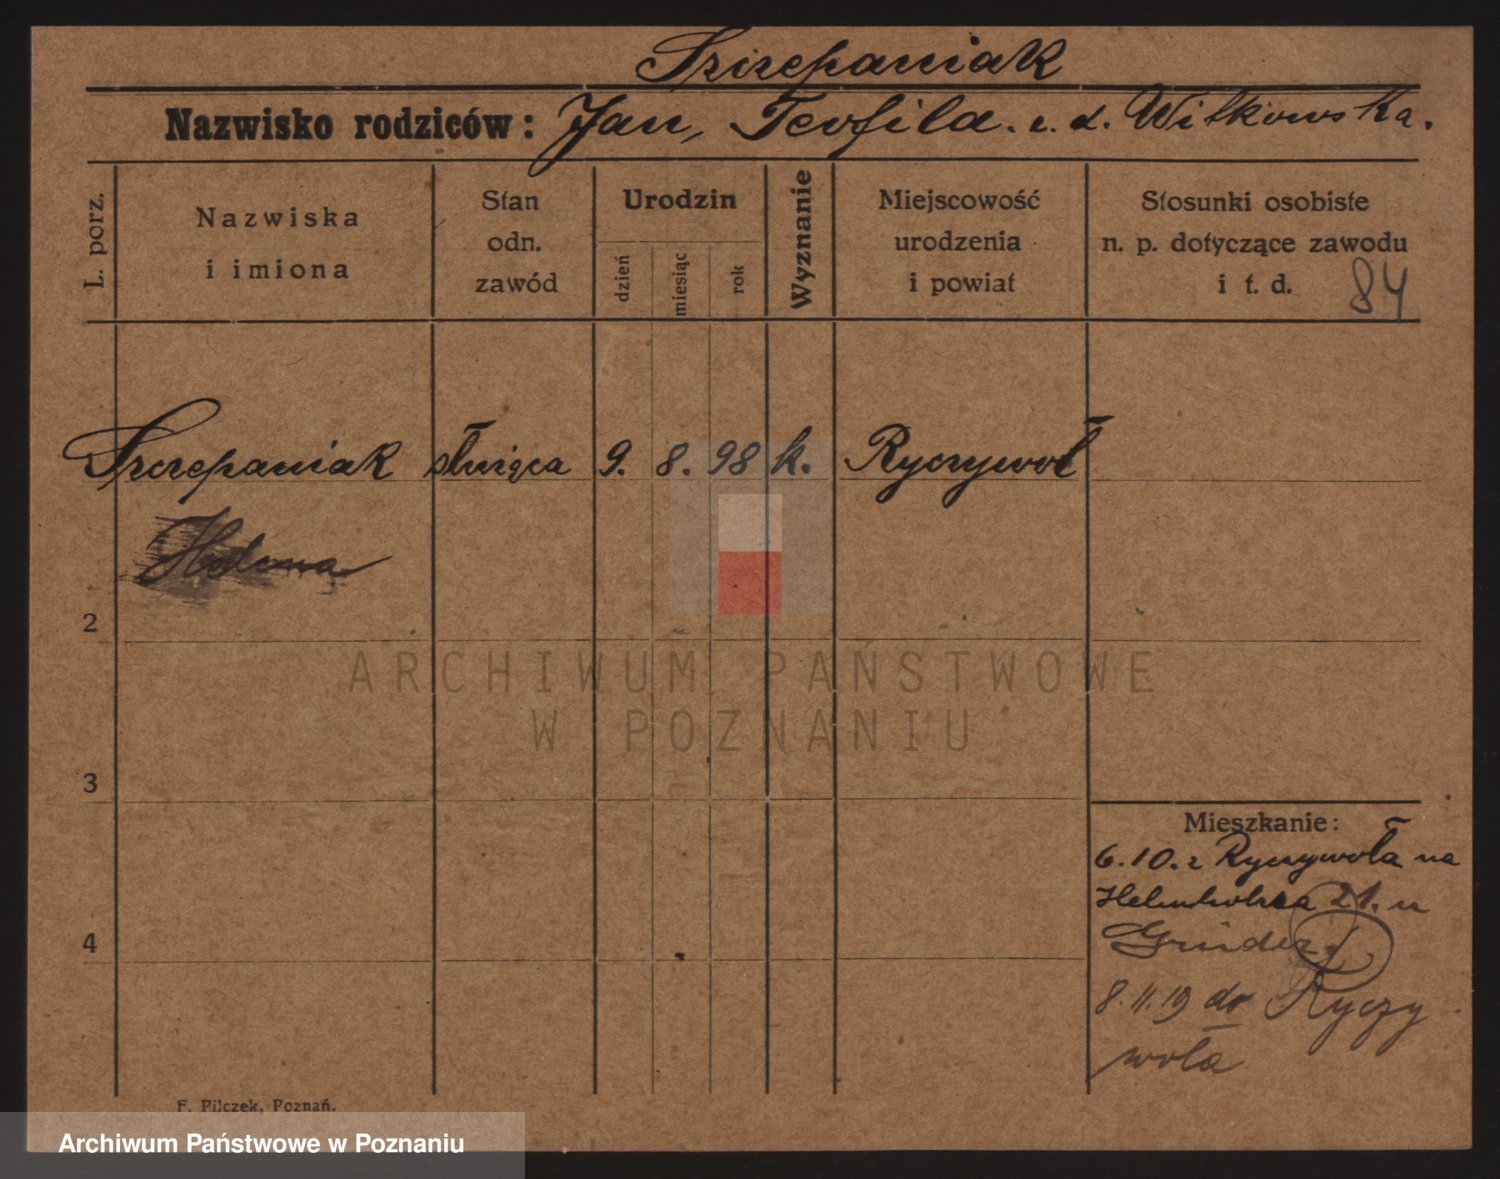 Szczepaniak
Nazwisko rodziców: Jan, Teofila. z. d. Witkowska.
L. porz.
Nazwiska
i imiona
Stan
odn.
zawód
Urodzin
dzień
miesiąc
rok
Wyznanie
Miejscowość
urodzenia
i powiat
Stosunki osobiste
n. p. dotyczące zawodu
i t. d.
84
Szczepaniak służąca 9. 8. 98 k. Ryczywół
Helena
2
3
4
ARCHIWUM PAŃSTWOWE
W POZNANIU
Mieszkanie:
6.10. z Ryczywoła na
21. u
8.11.19 do Ryczy
woła
F. Pilczek, Poznań.
Archiwum Państwowe w Poznaniu